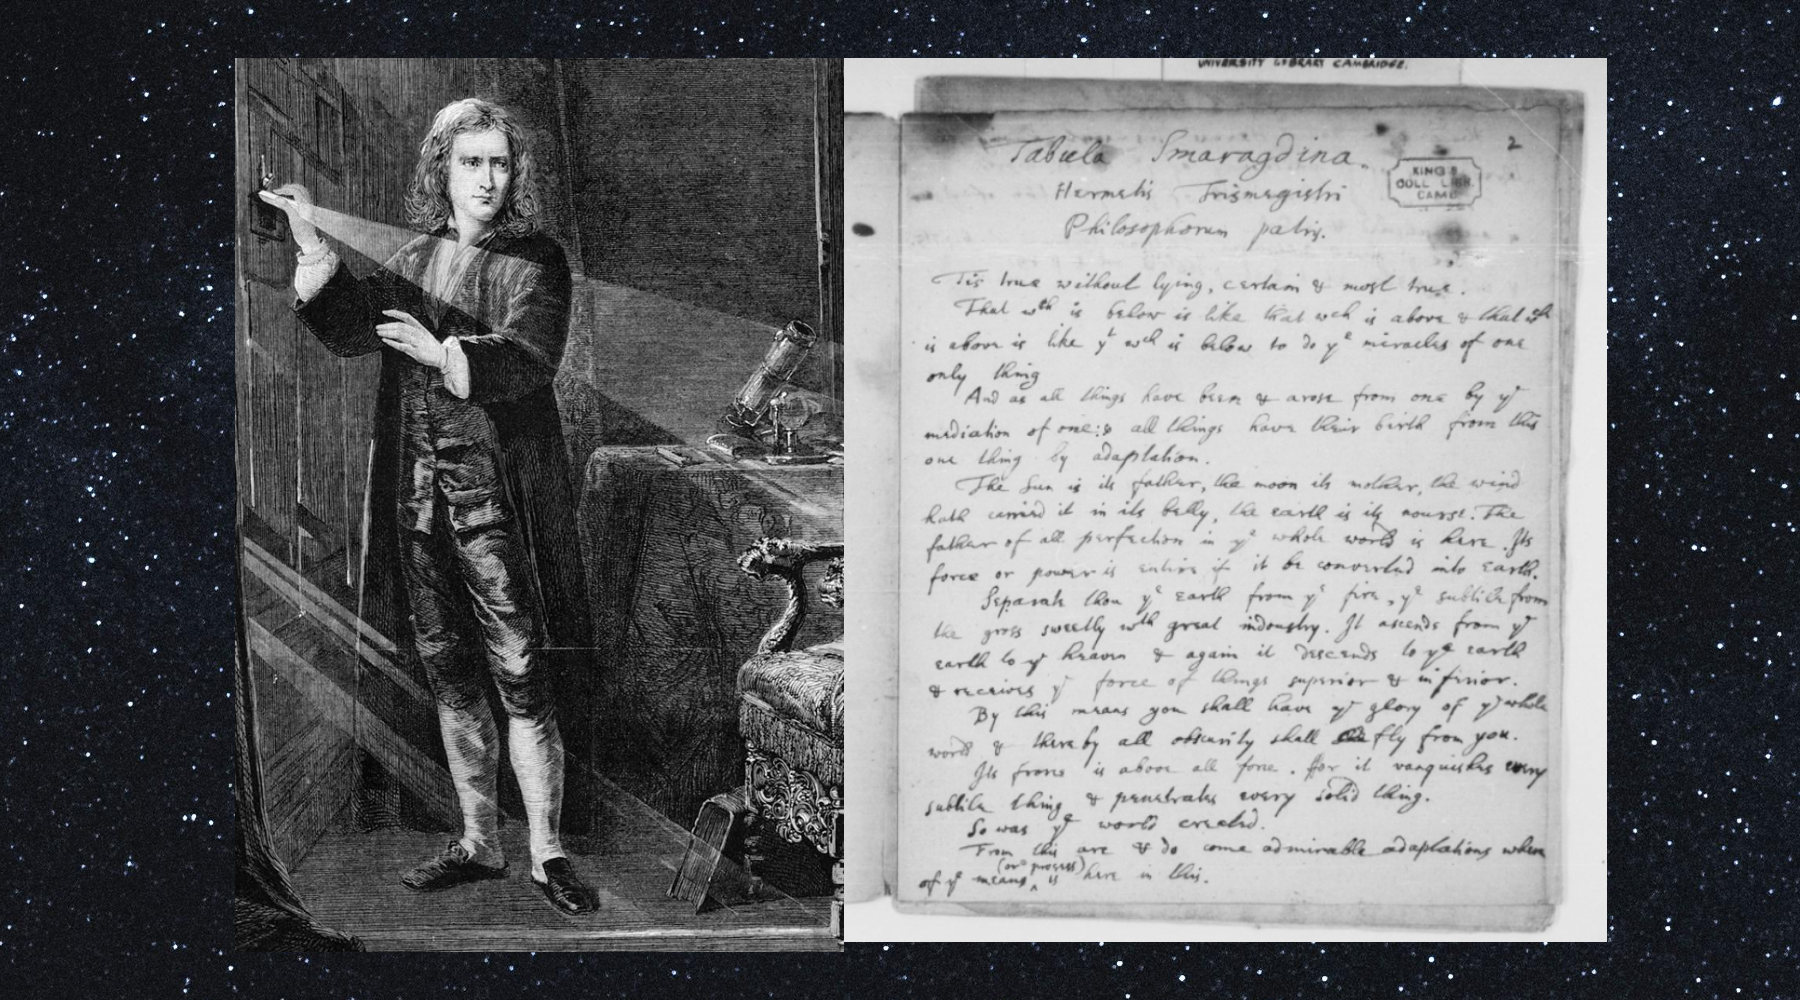 UNIVERSITY LIBRARY CAMBRIDGE.
2
Tabula Smaragdina.
KING'S
COLL LIBR.
CAMB
Hermetis Trismegistri
Philosophorum patris.
Tis true without lying, certain & most true.
That wch is below is like that wch is above & that wch
is above is like yt wch is below to do ye miracles of one
only thing
And as all things have been & arose from one by ye
mediation of one: so all things have their birth from this
one thing by adaptation.
The Sun is its father, the moon its mother, the wind
hath carried it in its belly, the earth is its nourse. The
father of all perfection in ye whole world is here. Its
force or power is entire if it be converted into earth.
Separate thou ye earth from ye fire, ye subtile from
the gross sweetly wth great indoustry. It ascends from ye
earth to ye heaven & again it descends to ye earth
& receives ye force of things superior & inferior.
By this means you shall have ye glory of ye whole
world & thereby all obscurity shall fly from you.
Its force is above all force. For it vanquishes every
subtile thing & penetrates every solid thing.
So was ye world created.
From this are & do come admirable adaptations where
of ye means (or process) is here in this.